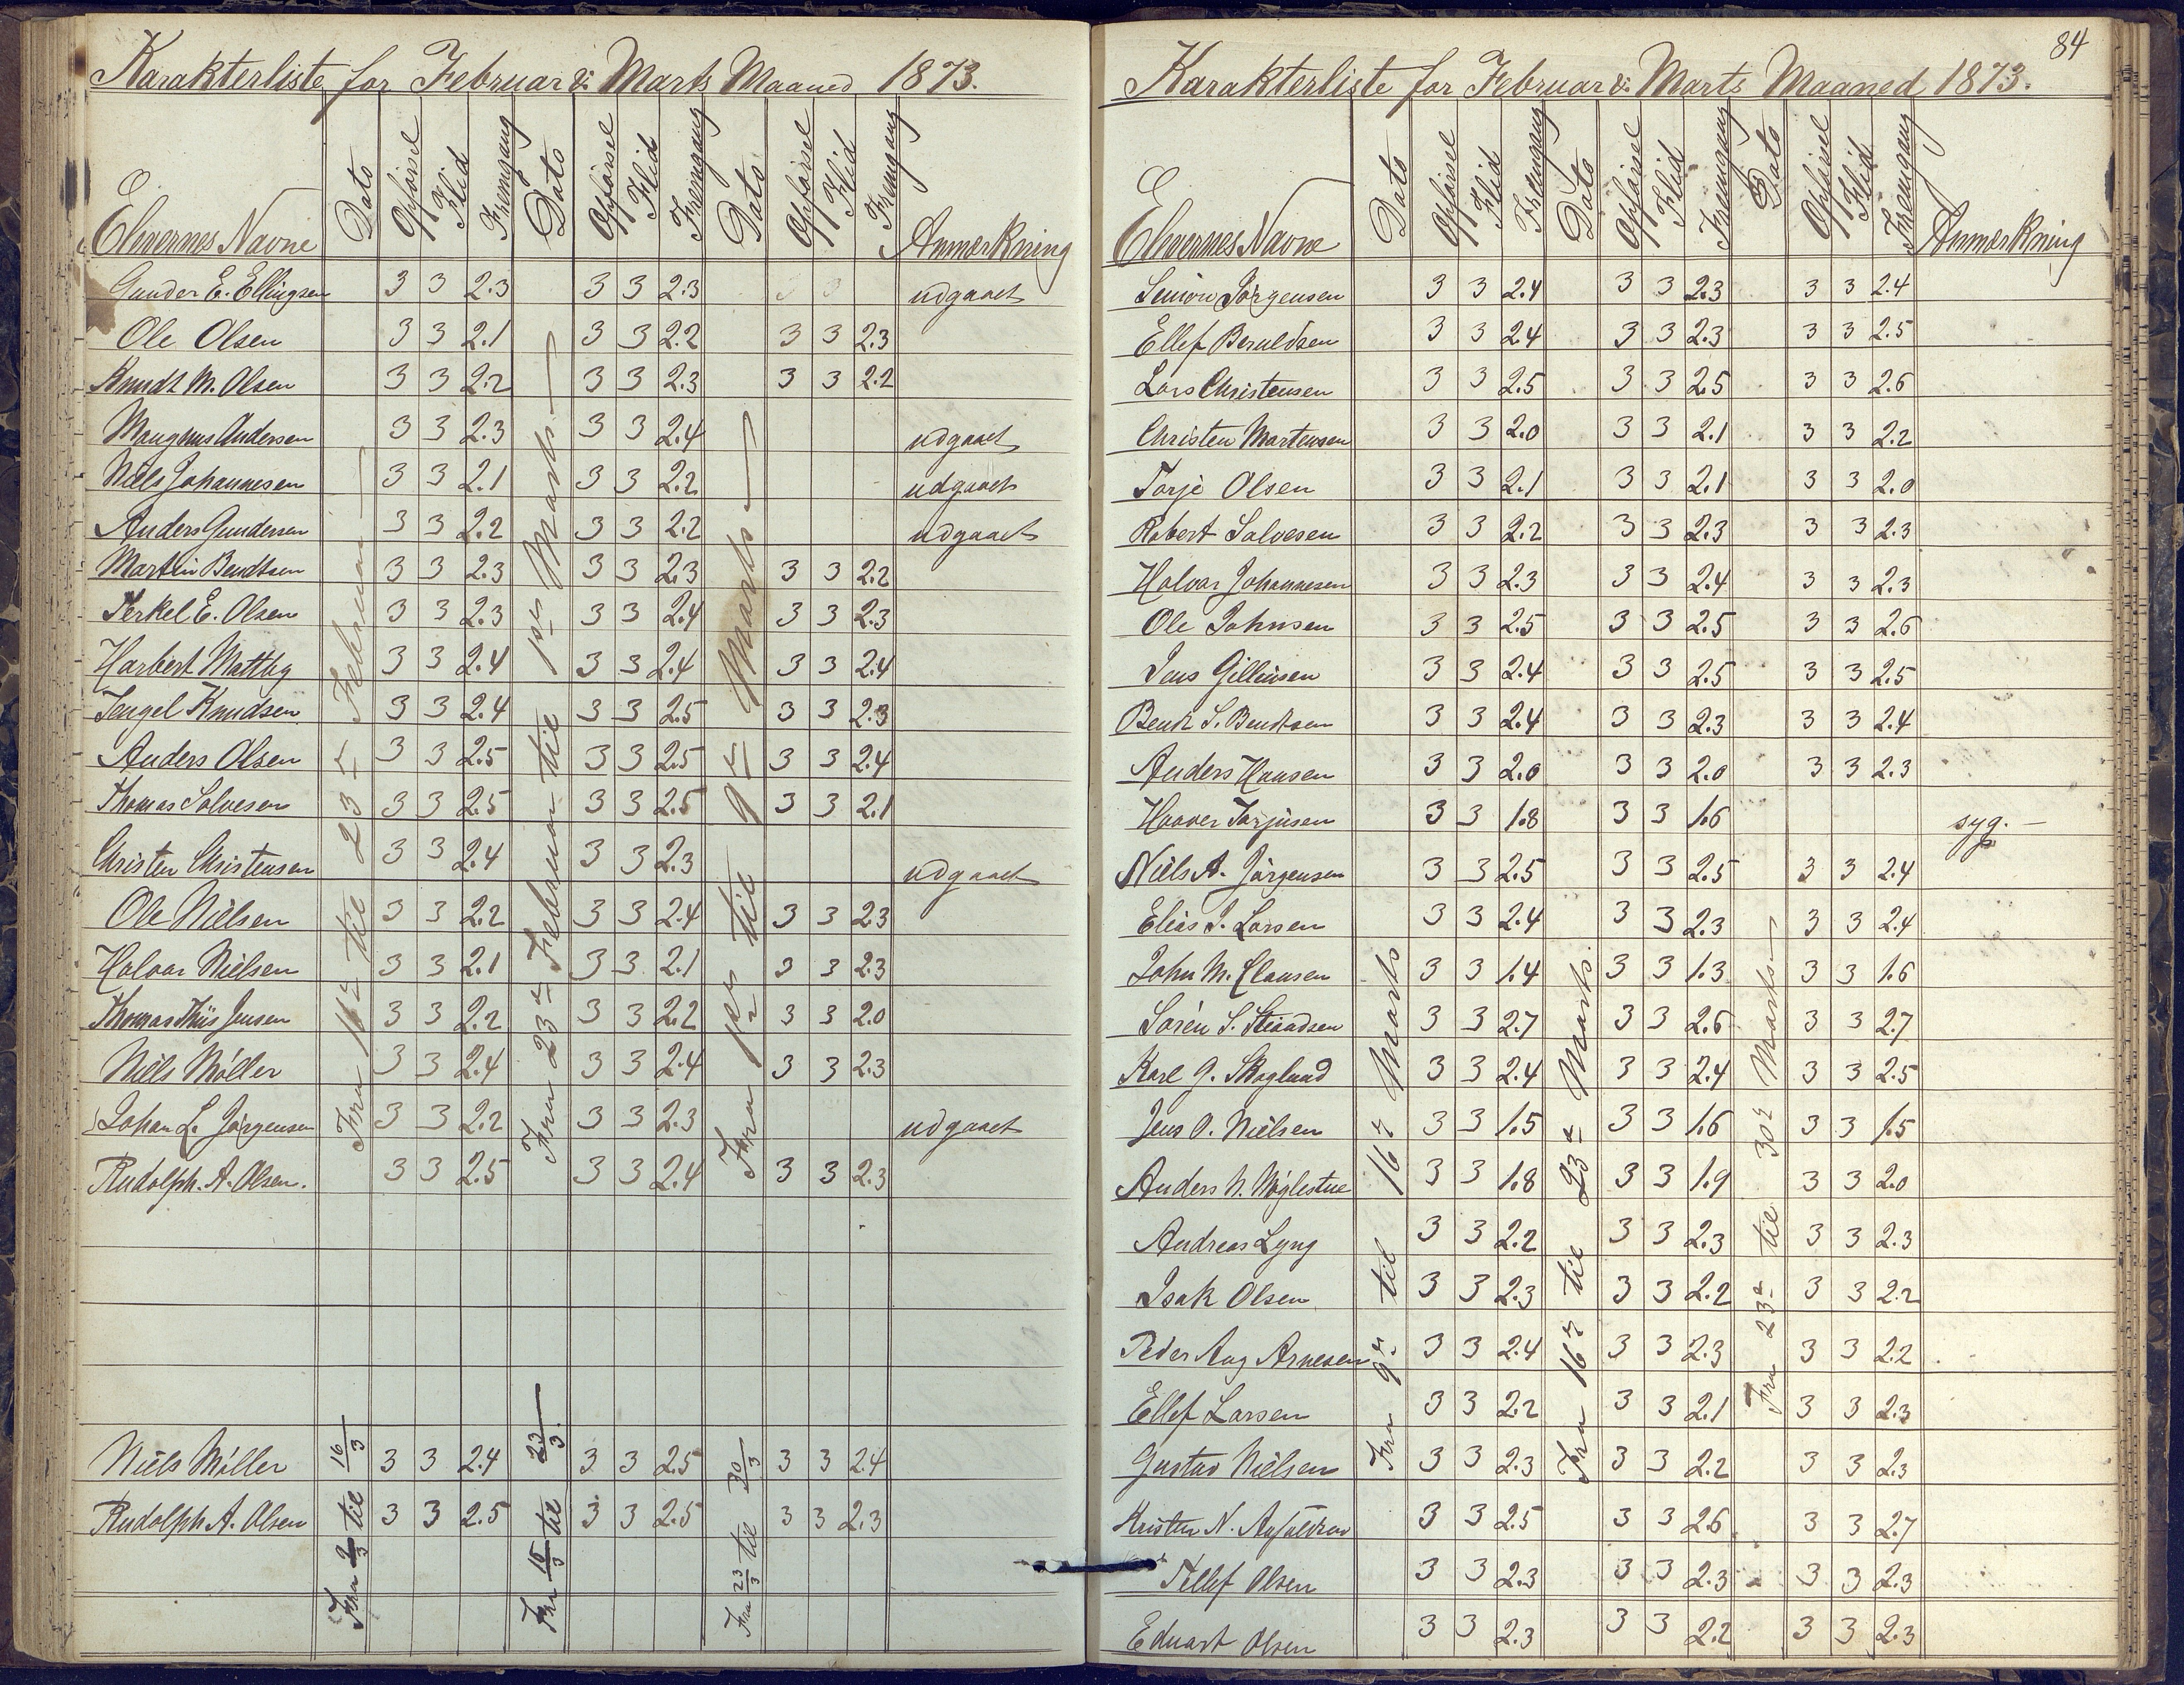 Karakterliste for Februar & Marts Maaned 1873.
Elevernes Navne Dato Opførsel Flid Fremgang Dato Opførsel Flid Fremgang Dato Opførsel Flid Fremgang Anmerkning
Fra 16de til 23de Februar
Fra 23de Februar til 1ste Marts
Fra 1ste til 9de Marts
Gunder E. Ellingsen 3 3 2.3 3 3 2.3 3 3 udgaaet
Ole Olsen 3 3 2.1 3 3 2.2 3 3 2.3
Knudt M. Olsen 3 3 2.2 3 3 2.3 3 3 2.2
Maugnus Andersen 3 3 2.3 3 3 2.4 udgaaet
Niels Johannesen 3 3 2.1 3 3 2.2 udgaaet
Anders Gundersen 3 3 2.2 3 3 2.2 udgaaet
Martin Bendtsen 3 3 2.3 3 3 2.3 3 3 2.2
Terkel E. Olsen 3 3 2.3 3 3 2.4 3 3 2.3
Harbert 3 3 2.4 3 3 2.4 3 3 2.4
Tengel Knudsen 3 3 2.4 3 3 2.5 3 3 2.3
Anders Olsen 3 3 2.5 3 3 2.5 3 3 2.4
Thomas Salvesen 3 3 2.5 3 3 2.5 3 3 2.1
Christen Christensen 3 3 2.4 3 3 2.3 udgaaet
Ole Nielsen 3 3 2.2 3 3 2.4 3 3 2.3
Halvar Nielsen 3 3 2.1 3 3 2.1 3 3 2.3
Thomas Thiis Jensen 3 3 2.2 3 3 2.2 3 3 2.0
Niels Møller 3 3 2.4 3 3 2.4 3 3 2.3
Johan L. Jørgensen 3 3 2.2 3 3 2.3 udgaaet
Rudolph. A. Olsen. 3 3 2.5 3 3 2.4 3 3 2.3
Fra 9/3 til 16/3
Fra 16/3 til 23/3.
Fra 23/3 til 30/3
Niels Møller 3 3 2.4 3 3 2.5 3 3 2.4
Rudolph A. Olsen 3 3 2.5 3 3 2.5 3 3 2.3
84
Karakterliste for Februar & Marts Maaned 1873.
Elevernes Navne Dato Opførsel Flid Fremgang Dato Opførsel Flid Fremgang Dato Opførsel Flid Fremgang Anmerkning
Fra 9de til 16de Marts
Fra 16de til 23de Marts.
Fra 23de til 30de Marts
Simon Jørgensen 3 3 2.4 3 3 2.3 3 3 2.4
Ellef Beruldsen 3 3 2.4 3 3 2.3 3 3 2.5
Lars Christensen 3 3 2.5 3 3 2.5 3 3 2.6
Christen Martensen 3 3 2.0 3 3 2.1 3 3 2.2
Tarje Olsen 3 3 2.1 3 3 2.1 3 3 2.0
Robert Salvesen 3 3 2.2 3 3 2.3 3 3 2.3
Halvar Johannesen 3 3 2.3 3 3 2.4 3 3 2.3
Ole Johnsen 3 3 2.5 3 3 2.5 3 3 2.6
Jens Gillinsen 3 3 2.4 3 3 2.5 3 3 2.5
Bendt S. Bendtsen 3 3 2.4 3 3 2.3 3 3 2.4
Anders Hansen 3 3 2.0 3 3 2.0 3 3 2.3
Haaver Tarjusen 3 3 1.8 3 3 1.6 syg.
Niels A. Jørgensen 3 3 2.5 3 3 2.5 3 3 2.4
Elias J. Larsen 3 3 2.4 3 3 2.3 3 3 2.4
John M. Clausen 3 3 1.4 3 3 1.3 3 3 1.6
Søren S. 3 3 2.7 3 3 2.6 3 3 2.7
Karl G. Skoglund 3 3 2.4 3 3 2.4 3 3 2.5
Jens O. Nielsen 3 3 1.5 3 3 1.6 3 3 1.5
Anders N. Nøglestue 3 3 1.8 3 3 1.9 3 3 2.0
Andreas Lyng 3 3 2.2 3 3 2.3 3 3 2.3
Isak Olsen 3 3 2.3 3 3 2.2 3 3 2.2
Peder Aug Arnesen 3 3 2.4 3 3 2.3 3 3 2.2
Ellef Larsen 3 3 2.2 3 3 2.1 3 3 2.3
Gustav Nielsen 3 3 2.3 3 3 2.2 3 3 2.3
Kristen N. 3 3 2.5 3 3 2.6 3 3 2.7
Tellef Olsen 3 3 2.3 3 3 2.3 3 3 2.3
Eduart Olsen 3 3 2.3 3 3 2.2 3 3 2.3